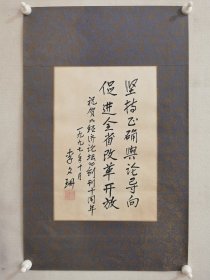 坚持正确舆论导向
促进全省改革开放
祝贺《经济论坛》创刊十周年
一九九七年十月
李文珊